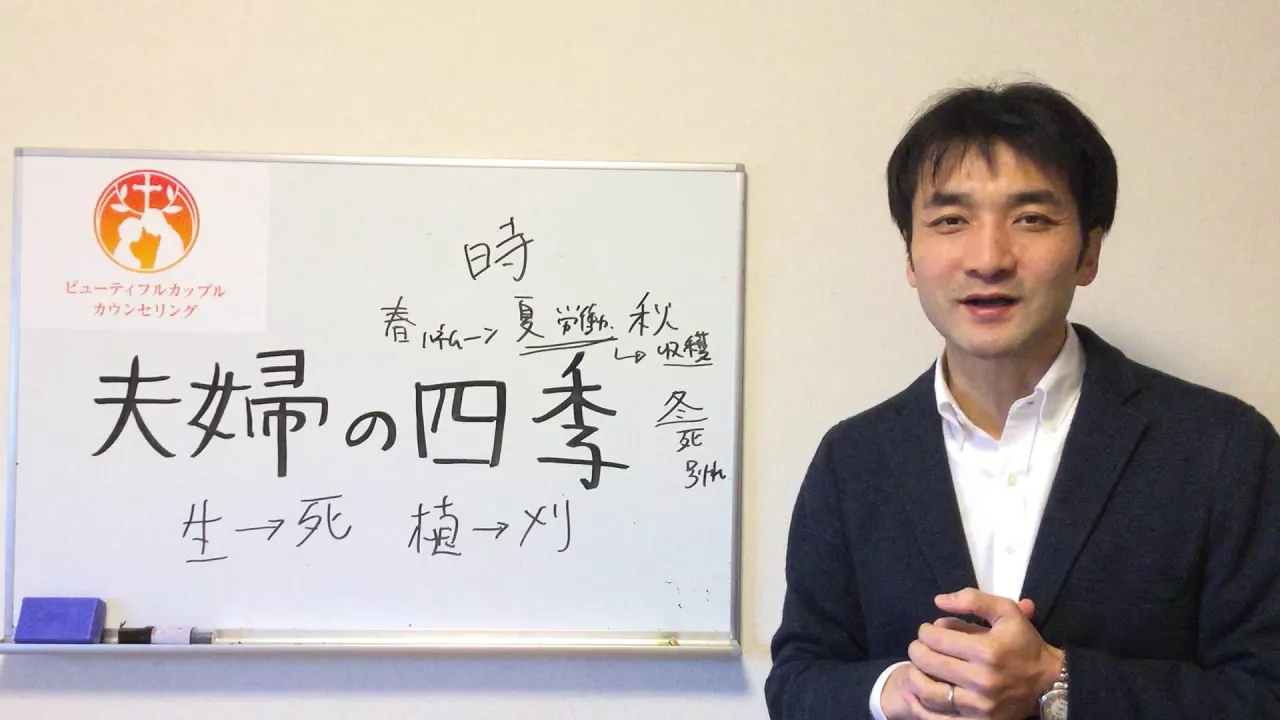 ビューティフルカップル
カウンセリング
時
春 ハネムーン 夏 労働 秋
↳ 収穫
夫婦の四季
冬
死
別れ
生→死 植→刈